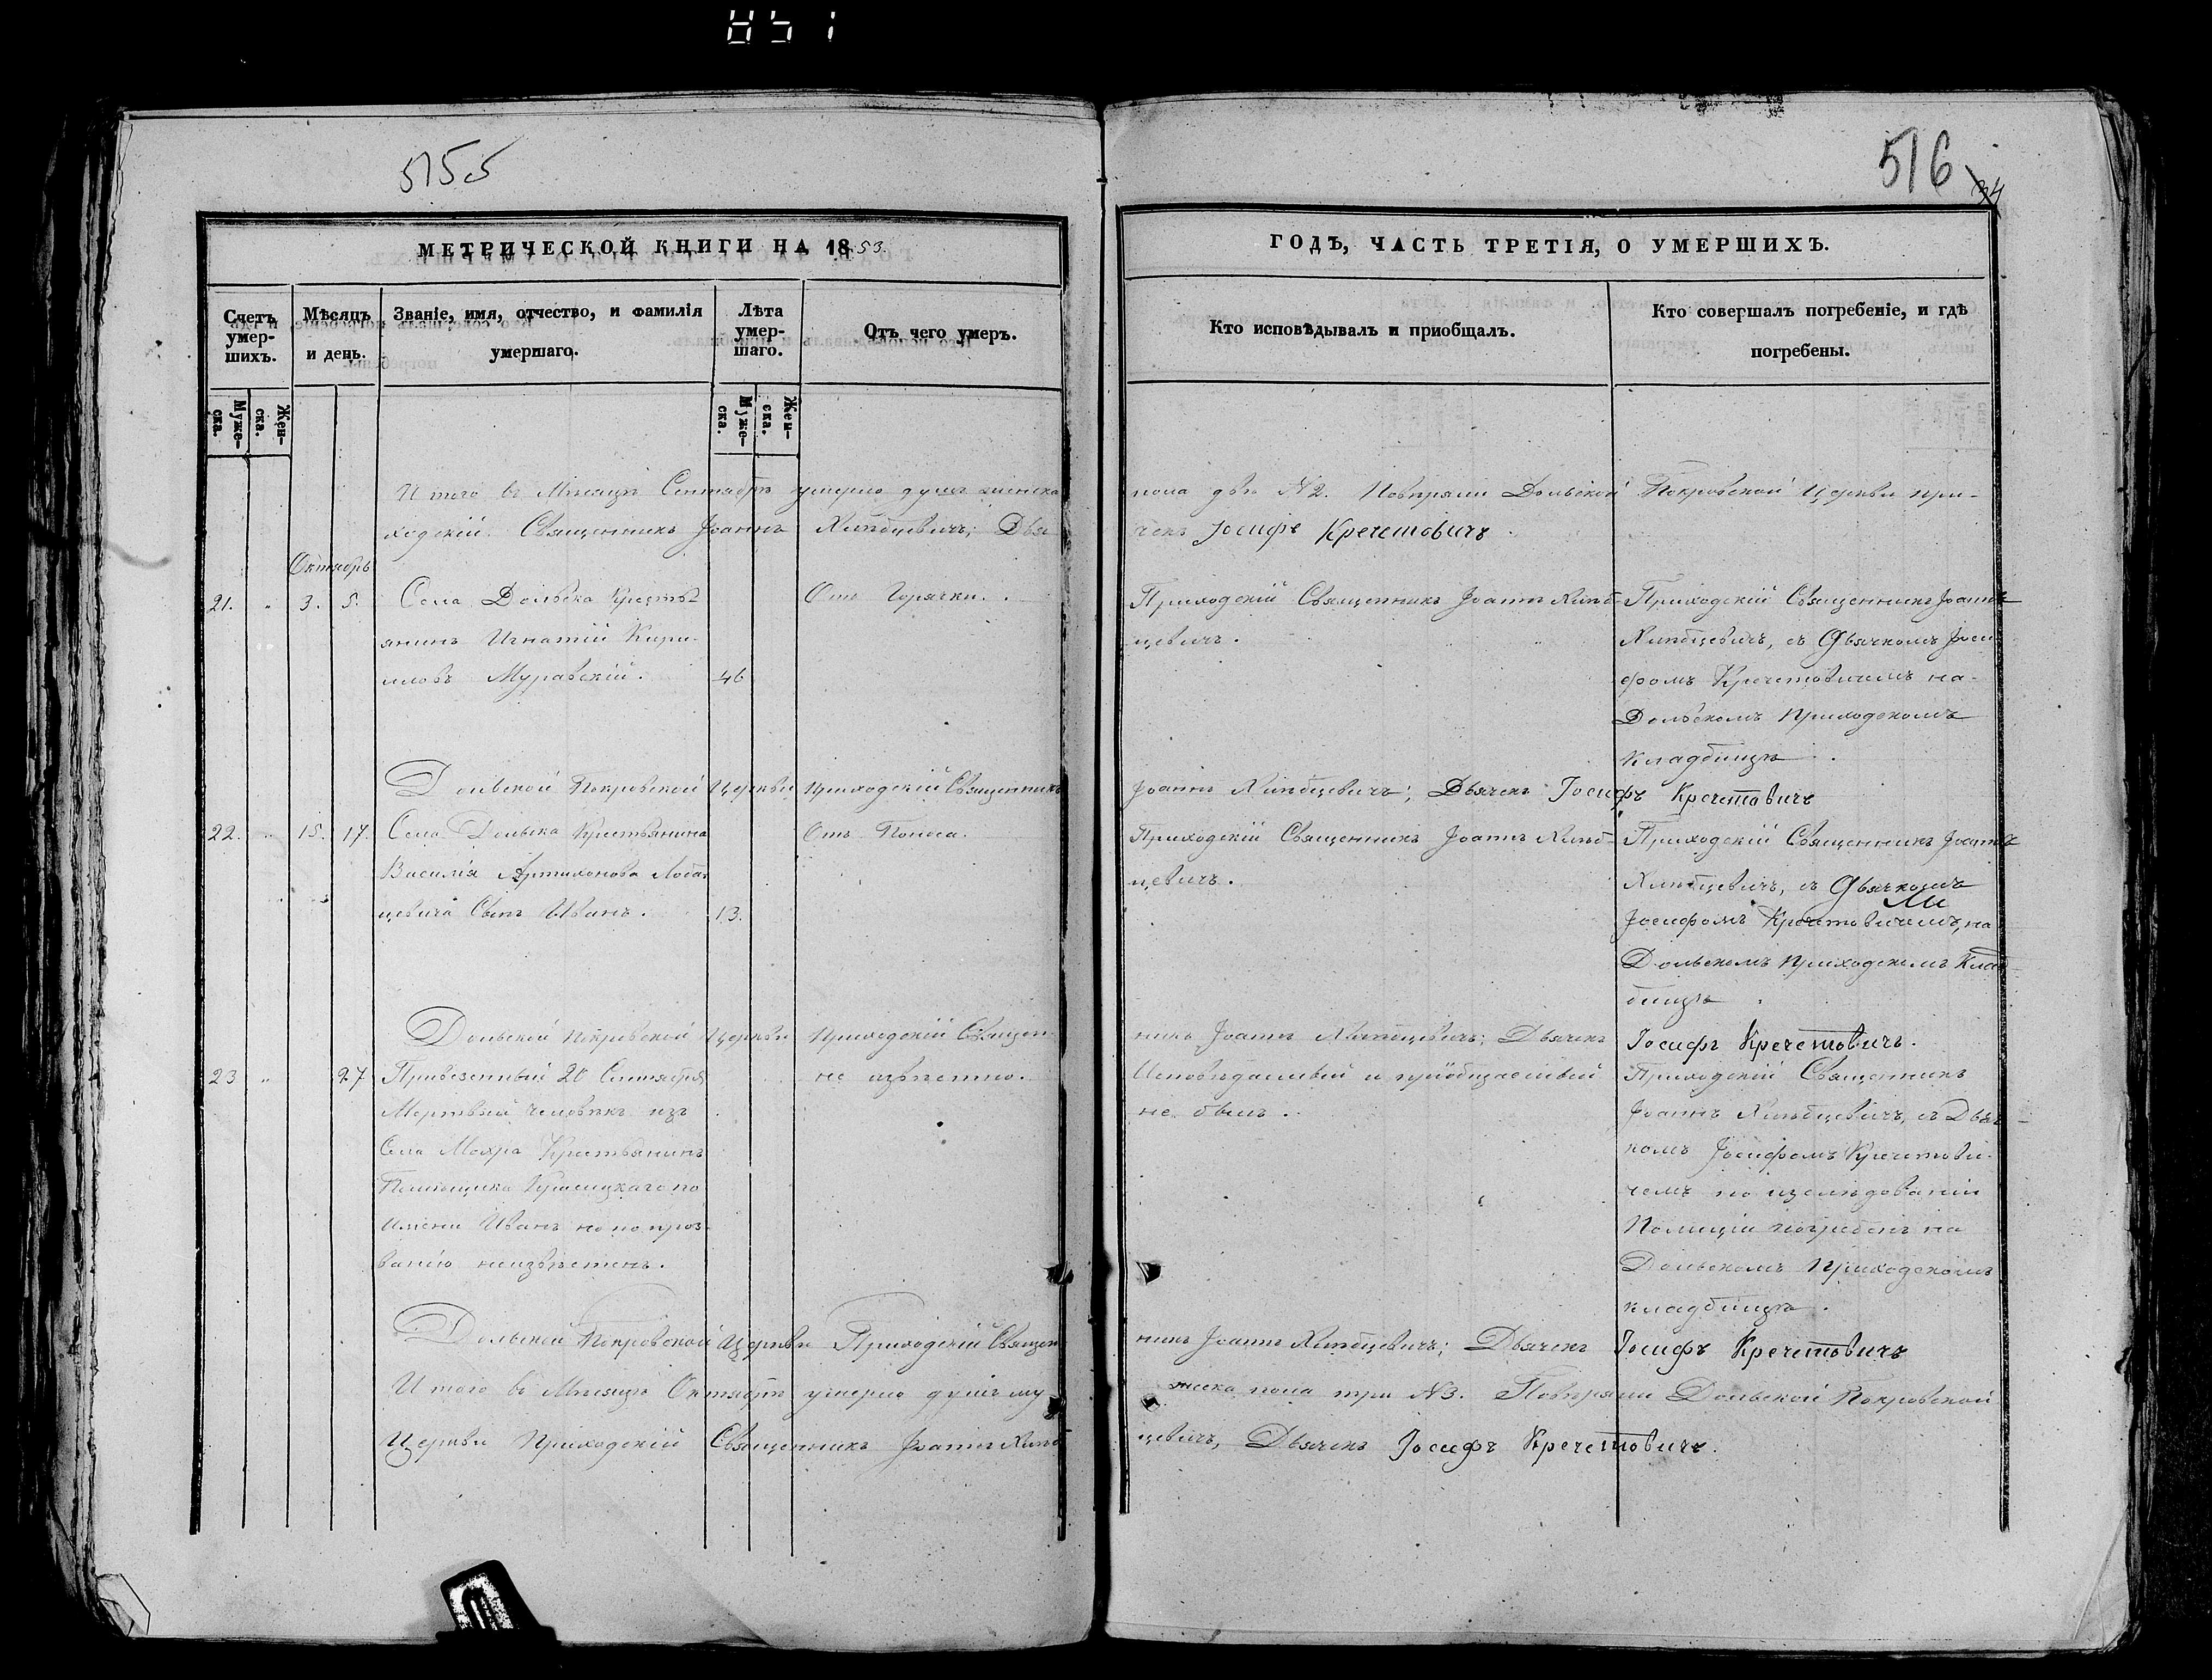 1541
5155
516
34
МЕТРИЧЕСКОЙ КНИГИ НА 1853.
Счетъ умер-шихъ.
Муже-ска.
Жен-ска.
Мѣсяцъ и день.
Званіе, имя, отчество, и фамилія умершаго.
Лѣта умер-шаго.
Муже-ска.
Жен-ска.
Отъ чего умеръ.
ГОДЪ, ЧАСТЬ ТРЕТІЯ, О УМЕРШИХЪ.
Кто исповѣдывалъ и приобщалъ.
Кто совершалъ погребеніе, и гдѣ погребены.
Итого въ Мѣсяцѣ Сентябрѣ умерло душъ женска пола двѣ №2. Повѣряли Дольской Покровской Церкви при-
ходскій Священникъ Іоаннъ Хлѣбцевичъ; Дья чекъ Іосифъ Кречетовичъ
Октябрь
21. " 3. 5. Села Дольска Кресть-
янинъ Игнатій Кири-
ловъ Муравскій. 46
Отъ Горячки.
Приходскій Священникъ Іоаннъ Хлѣб-
цевичъ.
Приходскій Священникъ Іоаннъ
Хлѣбцевичъ, съ Дьячкомъ Іоси
фомъ Кречетовичемъ на
Дольскомъ Приходскомъ
Кладбищѣ.
Дольской Покровской Церкви Приходскій Священникъ Іоаннъ Хлѣбцевичъ; Дьячекъ Іосифъ Кречетовичъ
22. " 15. 17. Села Дольска Крестьянина
Василія Артихонова Лоба-
цевича Сынъ Иванъ. 13.
Отъ Поноса.
Приходскій Священникъ Іоаннъ Хлѣб-
цевичъ.
Приходскій Священникъ Іоаннъ
Хлѣбцевичъ, съ Дьячкомъ
Іосифомъ Кречетовичемъ, на
Дольскомъ Приходскомъ Клад-
бищѣ.
Дольской Покровской Церкви Приходскій Священ-
никъ Іоаннъ Хлѣбцевичъ; Дьячекъ Іосифъ Кречетовичъ.
23 " 27 Привезенный 20 Сентября
Мертвый человѣкъ изъ
Села Мохра Крестьянинъ
Помѣщика
Имени Иванъ но по проз-
ванію неизвѣстенъ.
не извѣстно.
Исповѣдаемый и пріобщаемый
не былъ.
Приходскій Священникъ
Іоаннъ Хлѣбцевичъ, съ Дьяч-
комъ Іосифомъ Кречетови-
чемъ по изслѣдованіи
Полиціи погребенъ на
Дольскомъ Приходскомъ
кладбищѣ.
Дольской Покровской Церкви Приходскій Священ
никъ Іоаннъ Хлѣбцевичъ; Дьячекъ Іосифъ Кречетовичъ
Итого въ Мѣсяцѣ Октябрѣ умерло душъ му жеска пола три №3. Повѣряли Дольской Покровской
Церкви Приходскій Священникъ Іоаннъ Хлѣб цевичъ, Дьячекъ Іосифъ Кречетовичъ.